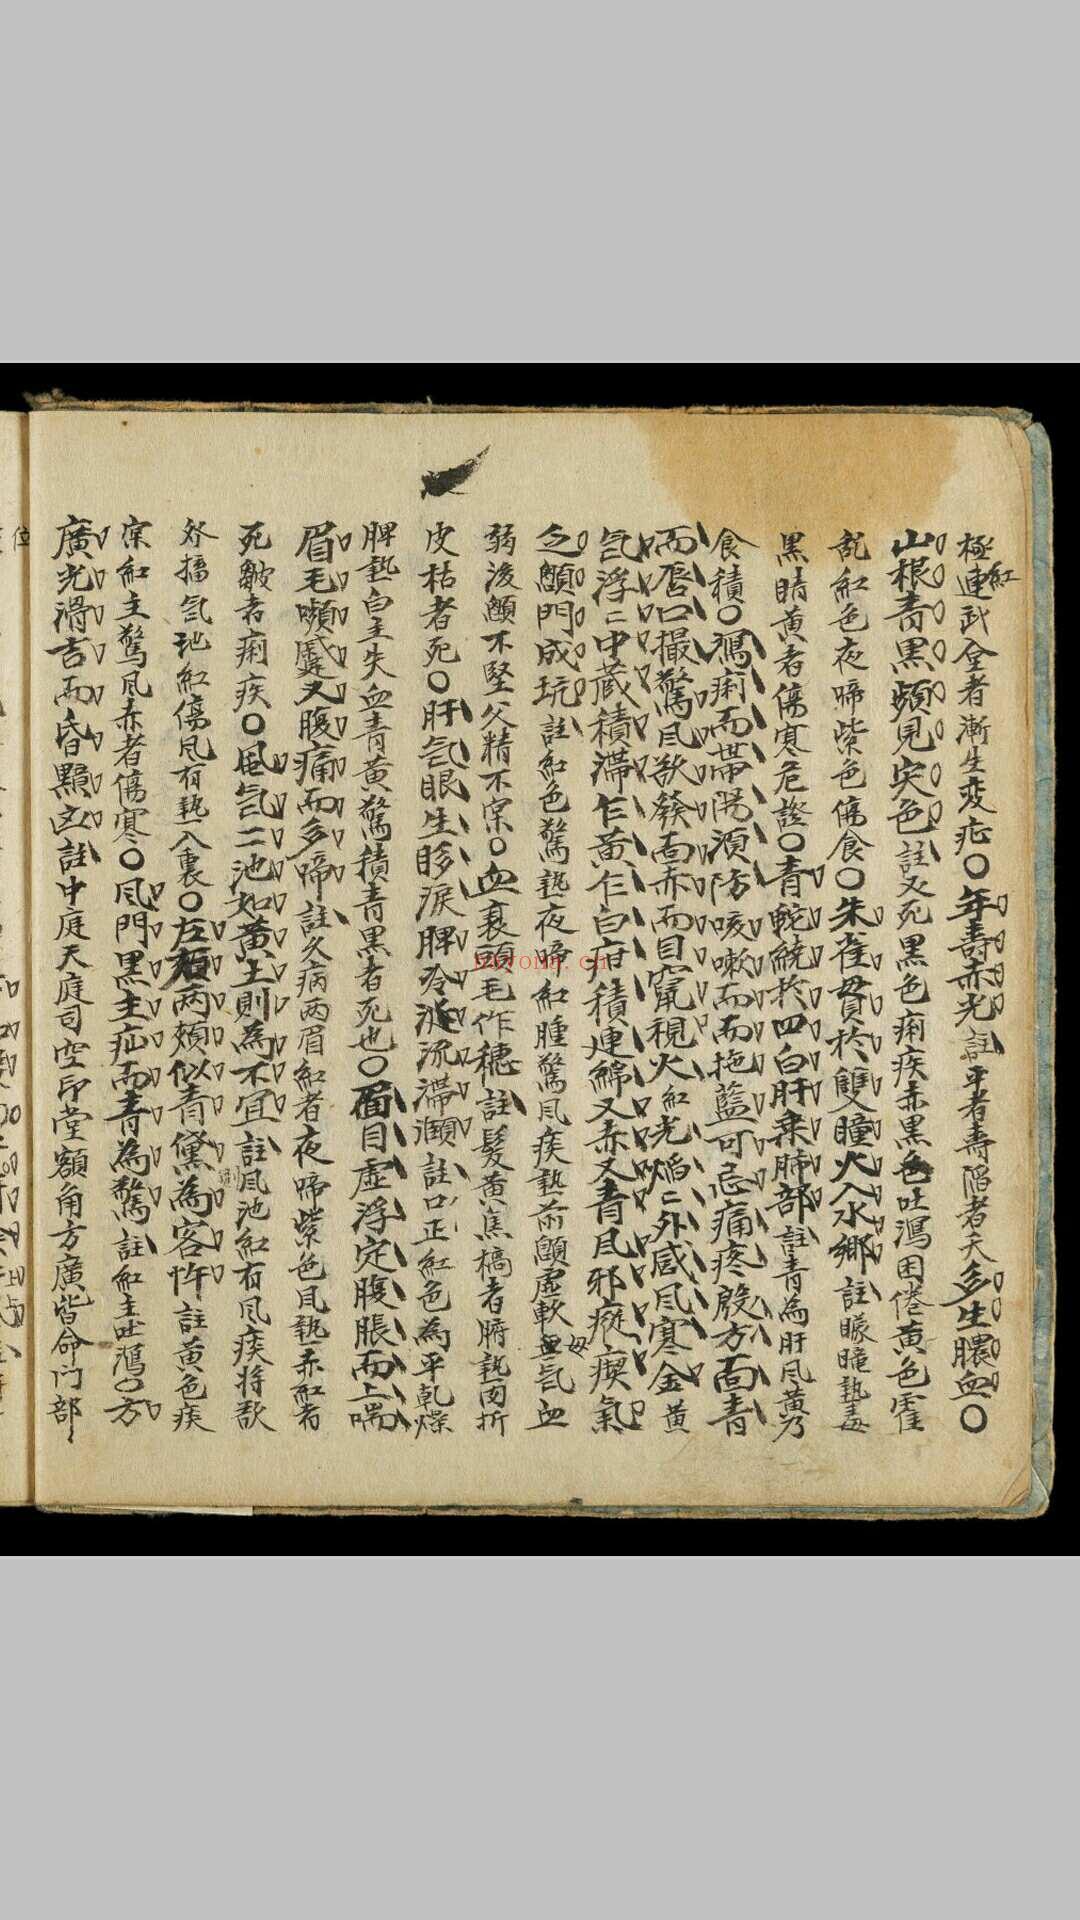 極連武全者漸生变疕〇年壽赤光註平者壽陷者夭多生膿血〇
紅
山根青黒頻見灾色註又死黒色痢疾赤黒色吐瀉困倦黄色霍
乱紅色夜啼紫色傷食〇朱雀貫於雙瞳火入水鄉註曚瞳热毒
黒睛黄者傷寒危證〇青蛇繞於四白肝乗肺部註青為肝风黄乃
食積〇瀉痢而帶陽須防咳嗽而面拖藍可忌痛疼殷方面青
而唇口撮驚风欲發面赤而目竄視火紅光焰〻外感风寒金黄
氣浮〻中蔵積滞乍黄乍白疳積連綿又赤又青风邪瘛瘲氣
乏顖門成坑註紅色驚热夜啼紅腫驚风疾热前顖虚軟血氣血
母
弱後顖不堅父精不宗〇血衰頭毛作穗註髮黄焦槁者腑热面折
皮枯者死〇肝氣眼生眵淚脾冷涎流滞頤註口正紅色為平乾燥
脾热白主失血青黄驚積青黒者死也〇面目虚浮定腹脹而上喘
眉毛頻蹙又腹痛而多啼註久病两眉紅者夜啼紫色风热赤紅者
死皺者痢疾〇風氣二池如黄土則為不宜註风池紅有风痰将欬
発搐氣池紅傷风有热入裏〇左右两頰似青黛為客忤註黄色痰
宗紅主驚风赤者傷寒〇风門黒主疝而青為驚註紅主吐瀉〇方
廣光滑吉而昏黯凶註中庭天庭司空印堂額角方廣皆命门部
位
boyona.cn